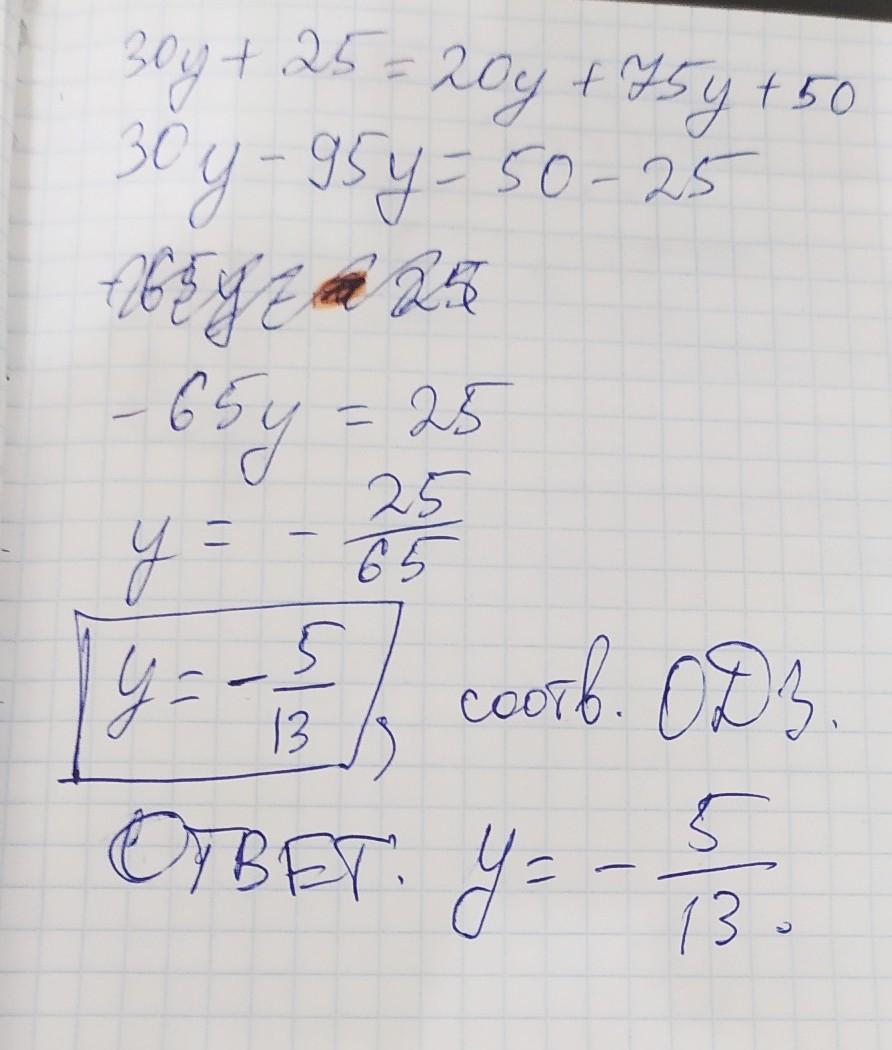 30y + 25 = 20y + 75y + 50
30y - 95y = 50 - 25
- 65y = 25
y = - 25/65
y = - 5/13, соотв. ОДЗ.
ОТВЕТ. y = - 5/13.